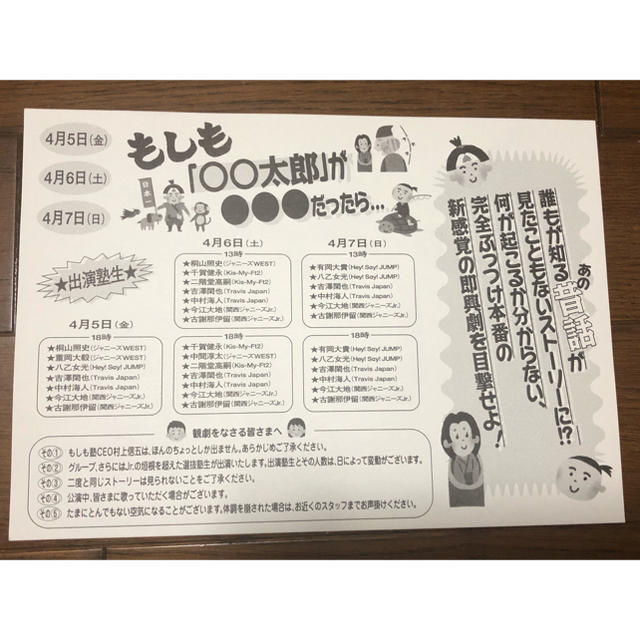 4月5日(金)
4月6日(土)
4月7日(日)
もしも
「〇〇太郎」が
●●●だったら...
日本一
★出演塾生★
4月5日(金)
18時
★桐山照史(ジャニーズWEST)
★重岡大毅(ジャニーズWEST)
★八乙女光(Hey! Say! JUMP)
★吉澤閑也(Travis Japan)
★中村海人(Travis Japan)
★今江大地(関西ジャニーズJr.)
★古謝那伊留(関西ジャニーズJr.)
4月6日(土)
13時
★桐山照史(ジャニーズWEST)
★千賀健永(Kis-My-Ft2)
★二階堂高嗣(Kis-My-Ft2)
★吉澤閑也(Travis Japan)
★中村海人(Travis Japan)
★今江大地(関西ジャニーズJr.)
★古謝那伊留(関西ジャニーズJr.)
18時
★千賀健永(Kis-My-Ft2)
★中間淳太(ジャニーズWEST)
★二階堂高嗣(Kis-My-Ft2)
★吉澤閑也(Travis Japan)
★中村海人(Travis Japan)
★今江大地(関西ジャニーズJr.)
★古謝那伊留(関西ジャニーズJr.)
4月7日(日)
13時
★有岡大貴(Hey! Say! JUMP)
★八乙女光(Hey! Say! JUMP)
★吉澤閑也(Travis Japan)
★中村海人(Travis Japan)
★今江大地(関西ジャニーズJr.)
★古謝那伊留(関西ジャニーズJr.)
18時
★有岡大貴(Hey! Say! JUMP)
★八乙女光(Hey! Say! JUMP)
★吉澤閑也(Travis Japan)
★中村海人(Travis Japan)
★今江大地(関西ジャニーズJr.)
★古謝那伊留(関西ジャニーズJr.)
誰もが知るあの昔話が
見たこともないストーリーに!?
何が起こるか分からない、
完全ぶっつけ本番の
新感覚の即興劇を目撃せよ!
観劇をなさる皆さまへ
その① もしも塾CEO村上信五は、ほんのちょっとしか出ません。あらかじめご了承ください。
その② グループ、さらにはJr.の垣根を超えた選抜塾生が出演いたします。出演塾生とその人数は、日によって変動がございます。
その③ 二度と同じストーリーは見られないことをご了承ください。
その④ 公演中、皆さまに歌っていただく場合がございます。
その⑤ たまにとんでもない空気になることがございます。体調を崩された場合は、お近くのスタッフまでお声掛けください。